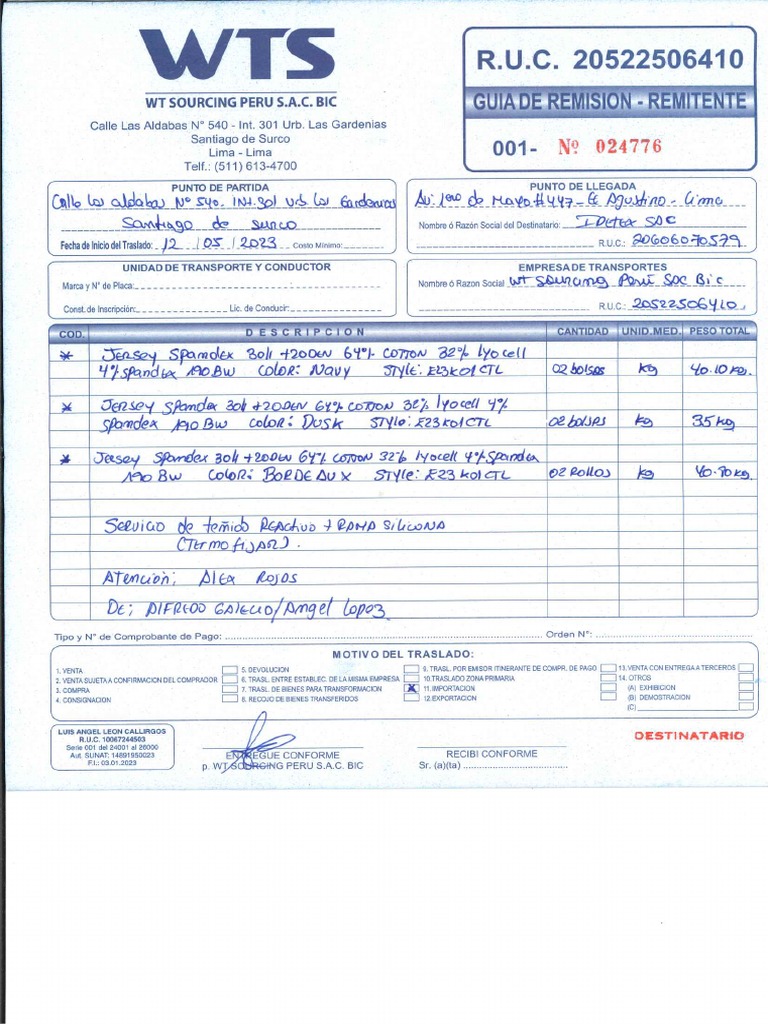 WTS
WT SOURCING PERU S.A.C. BIC
Calle Las Aldabas N° 540 - Int. 301 Urb. Las Gardenias
Santiago de Surco
Lima - Lima
Telf.: (511) 613-4700
R.U.C. 20522506410
GUIA DE REMISION - REMITENTE
001- Nº 024776
PUNTO DE PARTIDA
Calle Las aldabas Nº 540. Int.301 urb Las Gardenias
Santiago de Surco
Fecha de Inicio del Traslado: 12 / 05 / 2023 Costo Mínimo:
PUNTO DE LLEGADA
Av. 1ero de Mayo # 447 - El Agustino - Lima
Nombre ó Razón Social del Destinatario: IDETEX SAC
R.U.C.: 20606070579
UNIDAD DE TRANSPORTE Y CONDUCTOR
Marca y N° de Placa:
Const. de Inscripción: Lic. de Conducir:
EMPRESA DE TRANSPORTES
Nombre ó Razon Social WT Sourcing Perú SAC Bic
R.U.C.: 20522506410
COD. DESCRIPCION CANTIDAD UNID.MED. PESO TOTAL
* Jersey Spandex 30/1 +20DEN 64% COTTON 32% lyocell
4% spandex 190 BW COLOR: Navy STYLE: E23K01CTL 02 bolsas kg 40.10 kg.
* Jersey Spandex 30/1 +20DEN 64% COTTON 32% lyocell 4%
spandex 190 BW COLOR: DUSK STYLE: E23K01CTL 02 bolsas kg 35 kg
* Jersey Spandex 30/1 +20DEN 64% COTTON 32% lyocell 4% Spandex
190 BW COLOR: BORDEAUX STYLE: E23K01CTL 02 ROLLOS kg 40.70 kg.
Servicio de teñido REActivo + RAMA SILICONA
(Termofijar).
Atención; Alex Rojas
De; Alfredo Galecio/Angel Lopez
Tipo y N° de Comprobante de Pago: Orden N°:
MOTIVO DEL TRASLADO:
1. VENTA 5. DEVOLUCION 9. TRASL. POR EMISOR ITINERANTE DE COMPR. DE PAGO 13. VENTA CON ENTREGA A TERCEROS
2. VENTA SUJETA A CONFIRMACION DEL COMPRADOR 6. TRASL. ENTRE ESTABLEC. DE LA MISMA EMPRESA 10. TRASLADO ZONA PRIMARIA 14. OTROS
3. COMPRA 7. TRASL. DE BIENES PARA TRANSFORMACION X 11. IMPORTACION (A) EXHIBICION
4. CONSIGNACION 8. RECOJO DE BIENES TRANSFERIDOS 12. EXPORTACION (B) DEMOSTRACION
(C)
LUIS ANGEL LEON CALLIRGOS
R.U.C. 10067244503
Serie 001 del 24001 al 26000
Aut. SUNAT: 14891950023
F.I.: 03.01.2023
ENTREGUE CONFORME
p. WT SOURCING PERU S.A.C. BIC
RECIBI CONFORME
Sr. (a)(ta)
DESTINATARIO